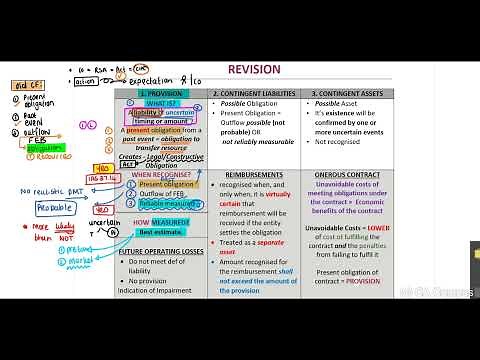 REVISION
Old CF:
① Present
obligation
② Past
event
③ Outflow
FEB
obligation
① RESOURCES
IAS 37.14
No realistic
Probable
• More likely
than NOT
uncertain
① Action
② Market
action
expectation
1. PROVISION
WHAT IS?
A liability of uncertain
timing or amount
A present obligation from a
past event = obligation to
transfer resource
Creates - Legal/Constructive
Obligation
WHEN RECOGNISE?
① Present obligation
② Outflow of FEB
③ Reliable measure
HOW MEASURED?
Best estimate
FUTURE OPERATING LOSSES
• Do not meet def of
liability
• No provision
Indication of Impairment
2. CONTINGENT LIABILITIES
• Possible Obligation
• Present Obligation =
Outflow possible (not
probable) OR
not reliably measurable
REIMBURSEMENTS
• recognised when, and
only when, it is virtually
certain that
reimbursement will be
received if the entity
settles the obligation
• Treated as a separate
asset
• Amount recognised for
the reimbursement shall
not exceed the amount of
the provision
3. CONTINGENT ASSETS
• Possible Asset
• It's existence will be
confirmed by one or
more uncertain events
• Not recognised
ONEROUS CONTRACT
Unavoidable costs of
meeting obligations under
the contract > Economic
benefits of the contract
Unavoidable Costs = LOWER
of cost of fulfilling the
contract and the penalties
from failing to fulfil it
Present obligation of
contract = PROVISION